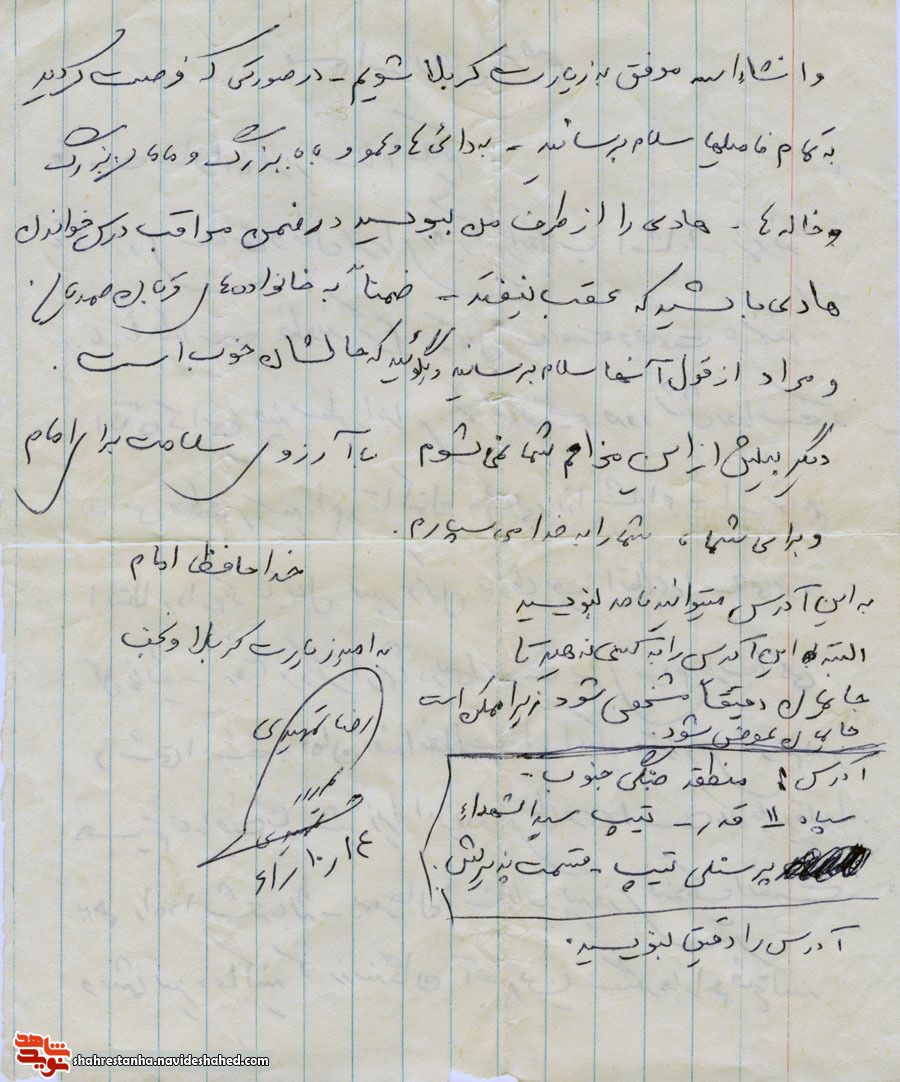 و انشاءاله موفق به زیارت کربلا شویم - در صورتی که فرصت کردید
به تمام فامیلها سلام برسانید - به دائی ها و عمو و بابابزرگ و مامان بزرگ
و خاله ها - هادی را از طرف من ببوسید در ضمن مراقب درس خواندن
هادی باشید که عقب نیفتد - ضمناً به خانواده های قربان صمدی
و مراد از قول آنها سلام برسانید و بگوئید که حالشان خوب است .
دیگر بیش از این مزاحم شما نمی شوم با آرزوی سلامت برای امام
و برای شما ، شما را به خدا می سپارم .
خداحافظ امام
به امید زیارت کربلا و نجف
رضا تمهیدی
تمهیدی
به این آدرس میتوانید نامه بنویسید
البته این آدرس را به کسی ندهید تا
جایمان دقیقاً مشخص شود زیرا ممکن است
جایمان عوض شود .
آدرس : منطقه جنگی جنوب -
سپاه ۱۱ قدر - تیپ سیدالشهداء
پرسنلی تیپ - قسمت پذیرش .
آدرس را دقیق بنویسید .
نوید شاهد
shahrestanha.navideshahed.com